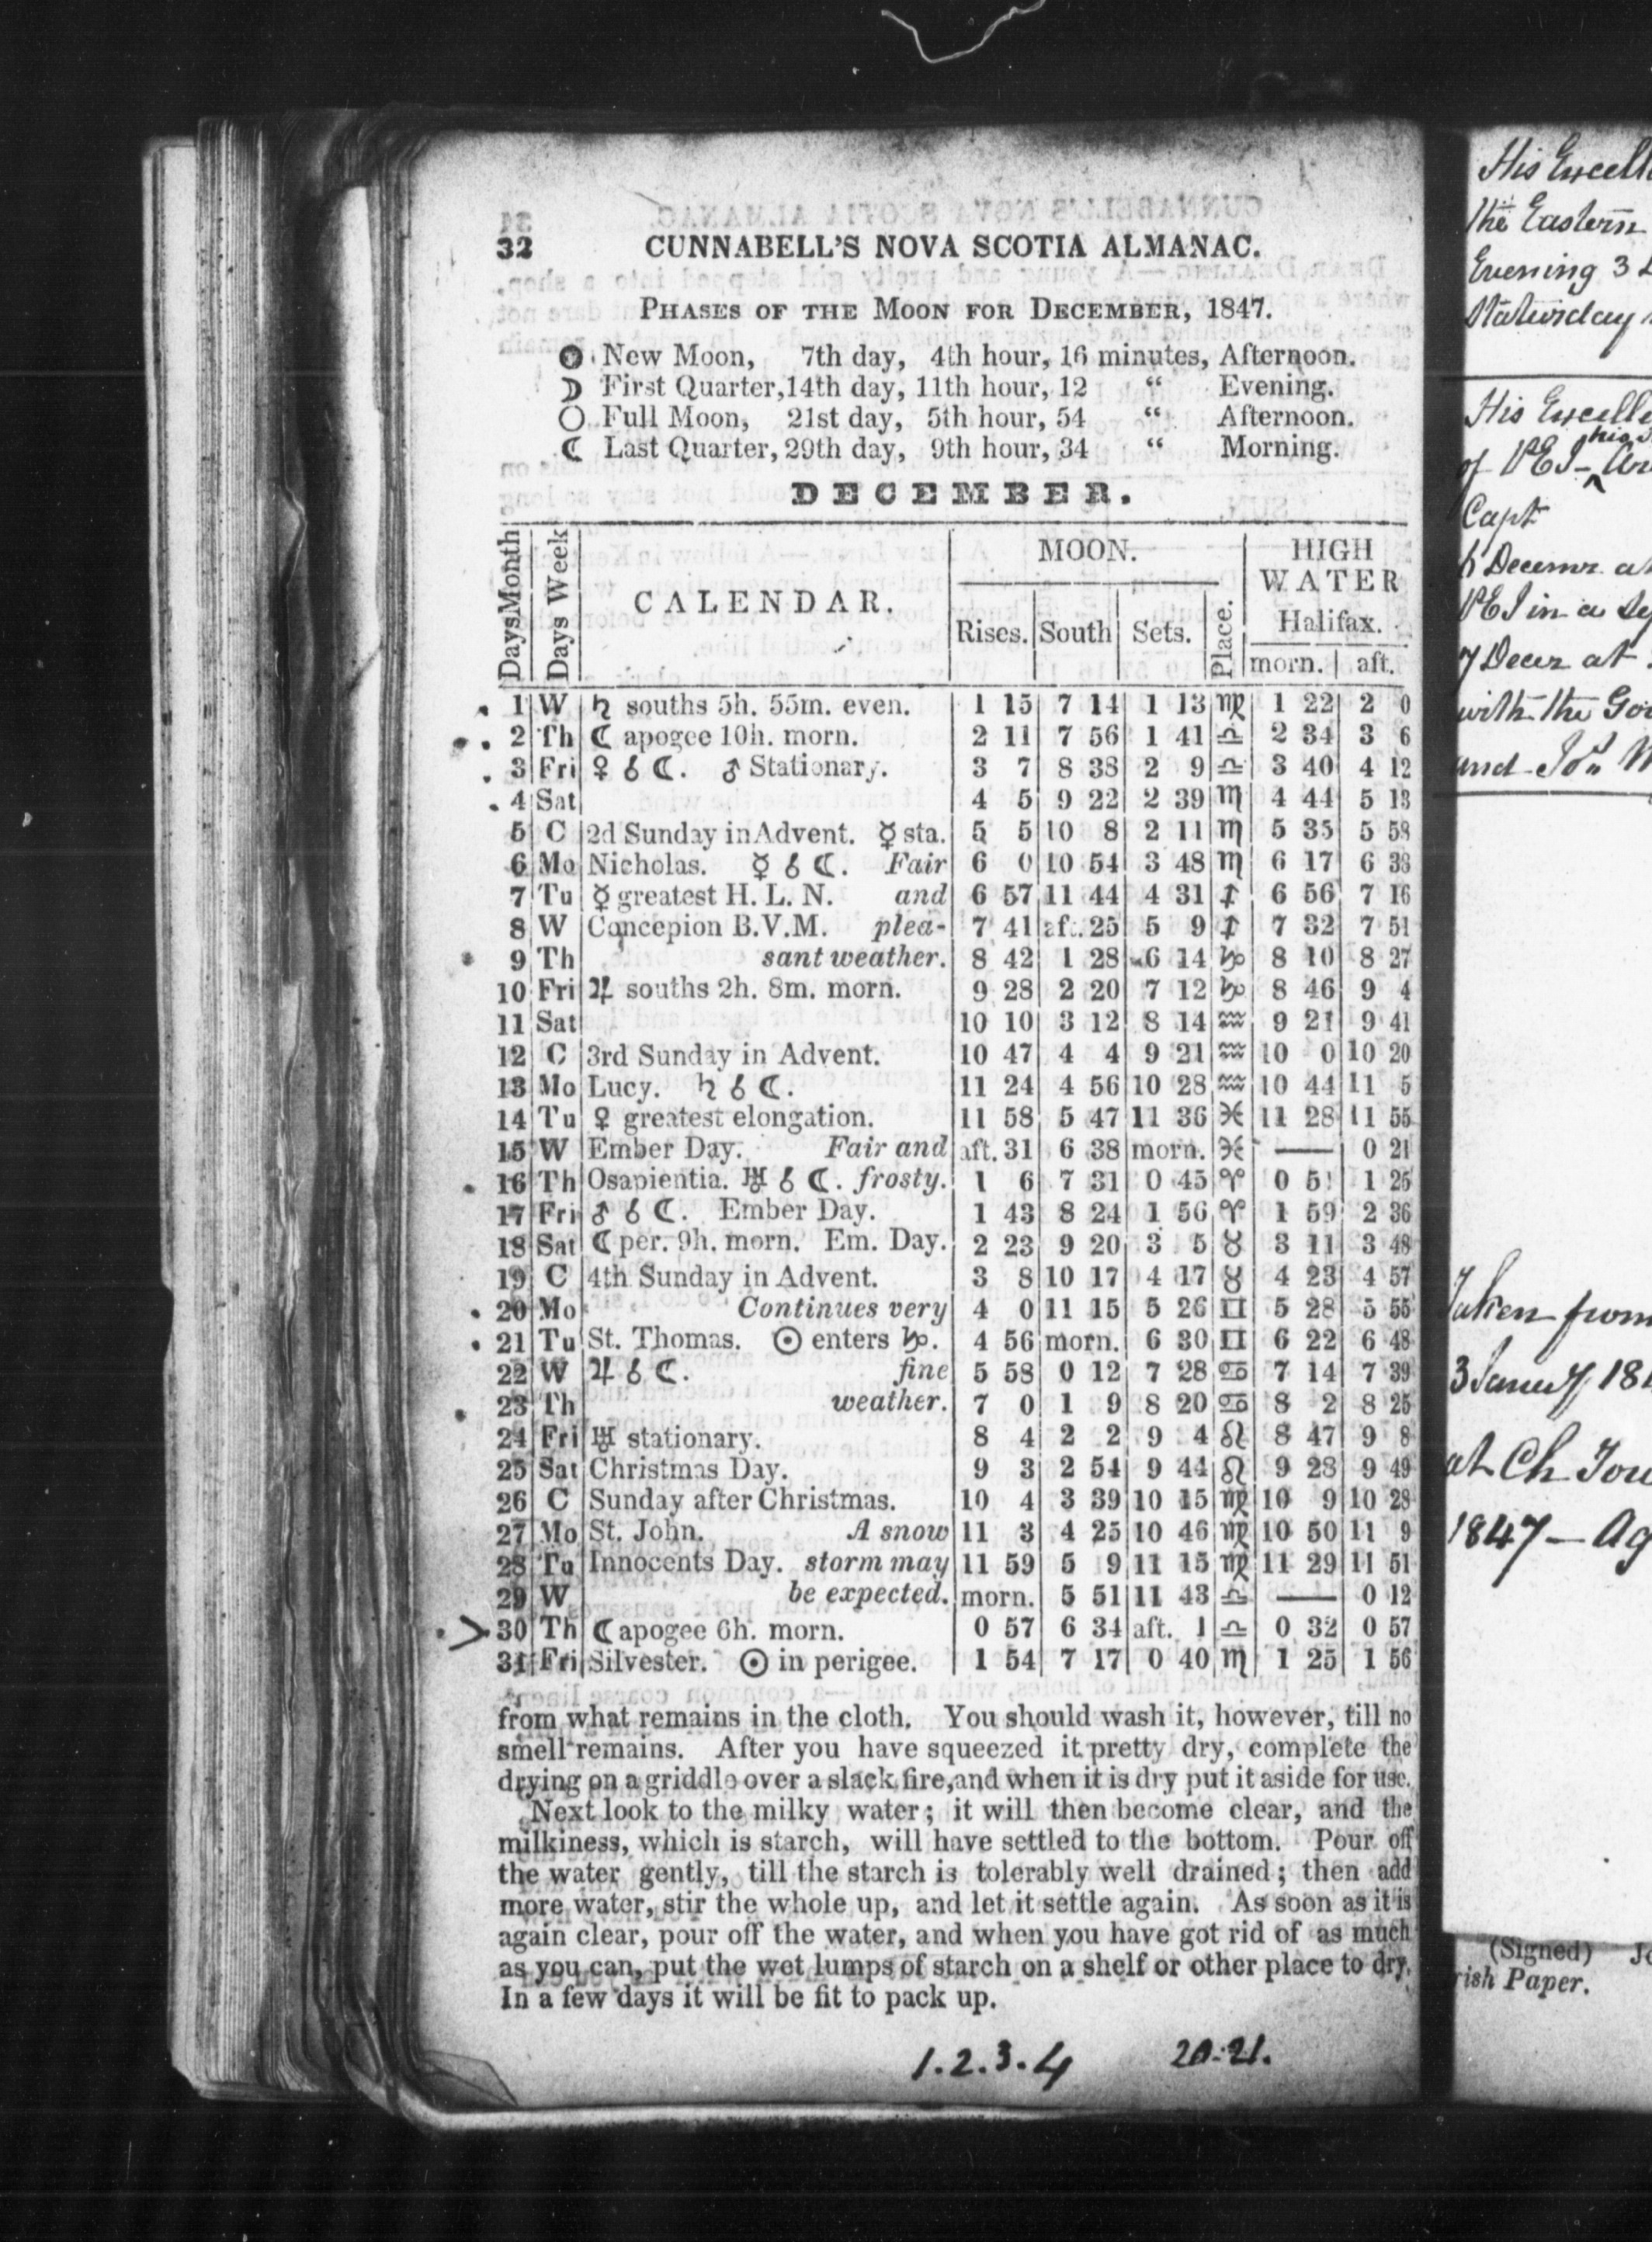 32 CUNNABELL'S NOVA SCOTIA ALMANAC.
PHASES OF THE MOON FOR DECEMBER, 1847.
New Moon, 7th day, 4th hour, 16 minutes, Afternoon.
☽ First Quarter, 14th day, 11th hour, 12 “ Evening.
○ Full Moon, 21st day, 5th hour, 54 “ Afternoon.
☾ Last Quarter, 29th day, 9th hour, 34 “ Morning.
DECEMBER.
Days Month
Days Week
CALENDAR.
MOON.
Rises. South Sets. Place.
HIGH WATER
Halifax.
morn. aft.
1 W ♄ souths 5h. 55m. even. 1 15 7 14 1 13 ♍ 1 22 2 0
2 Th ☾ apogee 10h. morn. 2 11 7 56 1 41 ♎ 2 34 3 6
3 Fri ♀ ☌ ☾. ♂ Stationary. 3 7 8 38 2 9 ♎ 3 40 4 12
4 Sat 4 5 9 22 2 39 ♏ 4 44 5 13
5 C 2d Sunday in Advent. ☿ sta. 5 5 10 8 2 11 ♏ 5 35 5 58
6 Mo Nicholas. ☿ ☌ ☾. Fair 6 0 10 54 3 48 ♏ 6 17 6 38
7 Tu ☿ greatest H. L. N. and 6 57 11 44 4 31 ♐ 6 56 7 16
8 W Concepion B.V.M. plea- 7 41 af. 25 5 9 ♐ 7 32 7 51
9 Th sant weather. 8 42 1 28 6 14 ♑ 8 10 8 27
10 Fri ♃ souths 2h. 8m. morn. 9 28 2 20 7 12 ♑ 8 46 9 4
11 Sat 10 10 3 12 8 14 ♒ 9 21 9 41
12 C 3rd Sunday in Advent. 10 47 4 4 9 21 ♒ 10 0 10 20
13 Mo Lucy. ♄ ☌ ☾. 11 24 4 56 10 28 ♒ 10 44 11 5
14 Tu ♀ greatest elongation. 11 58 5 47 11 36 ♓ 11 28 11 55
15 W Ember Day. Fair and aft. 31 6 38 morn. ♓ —— 0 21
16 Th Osapientia. ♅ ☌ ☾. frosty. 1 6 7 31 0 45 ♈ 0 51 1 25
17 Fri ♂ ☌ ☾. Ember Day. 1 43 8 24 1 56 ♈ 1 59 2 36
18 Sat ☾ per. 9h. morn. Em. Day. 2 23 9 20 3 5 ♉ 3 11 3 48
19 C 4th Sunday in Advent. 3 8 10 17 4 17 ♉ 4 23 4 57
20 Mo Continues very 4 0 11 15 5 26 ♊ 5 28 5 55
21 Tu St. Thomas. ☉ enters ♑. 4 56 morn. 6 30 ♊ 6 22 6 48
22 W ♃ ☌ ☾. fine 5 58 0 12 7 28 ♋ 7 14 7 39
23 Th weather. 7 0 1 9 8 20 ♋ 8 2 8 25
24 Fri ♅ stationary. 8 4 2 2 9 4 ♌ 8 47 9 8
25 Sat Christmas Day. 9 3 2 54 9 44 ♌ 9 28 9 49
26 C Sunday after Christmas. 10 4 3 39 10 15 ♍ 10 9 10 28
27 Mo St. John. A snow 11 3 4 25 10 46 ♍ 10 50 11 9
28 Tu Innocents Day. storm may 11 59 5 9 11 15 ♍ 11 29 11 51
29 W be expected. morn. 5 51 11 43 ♎ —— 0 12
30 Th ☾ apogee 6h. morn. 0 57 6 34 aft. 1 ♎ 0 32 0 57
31 Fri Silvester. ☉ in perigee. 1 54 7 17 0 40 ♏ 1 25 1 56
from what remains in the cloth. You should wash it, however, till no
smell remains. After you have squeezed it pretty dry, complete the
drying on a griddle over a slack fire, and when it is dry put it aside for use.
Next look to the milky water; it will then become clear, and the
milkiness, which is starch, will have settled to the bottom. Pour off
the water gently, till the starch is tolerably well drained; then add
more water, stir the whole up, and let it settle again. As soon as it is
again clear, pour off the water, and when you have got rid of as much
as you can, put the wet lumps of starch on a shelf or other place to dry.
In a few days it will be fit to pack up.
1.2.3.4 20.21.
His Excell
the Eastern
Evening 3
His Excelle
of PEI - his
Capt
PEI in a
7 Decr at
with the Go
and
Taken from
3 Janry 18
at Ch Tow
1847 - Ag
(Signed)
rish Paper.